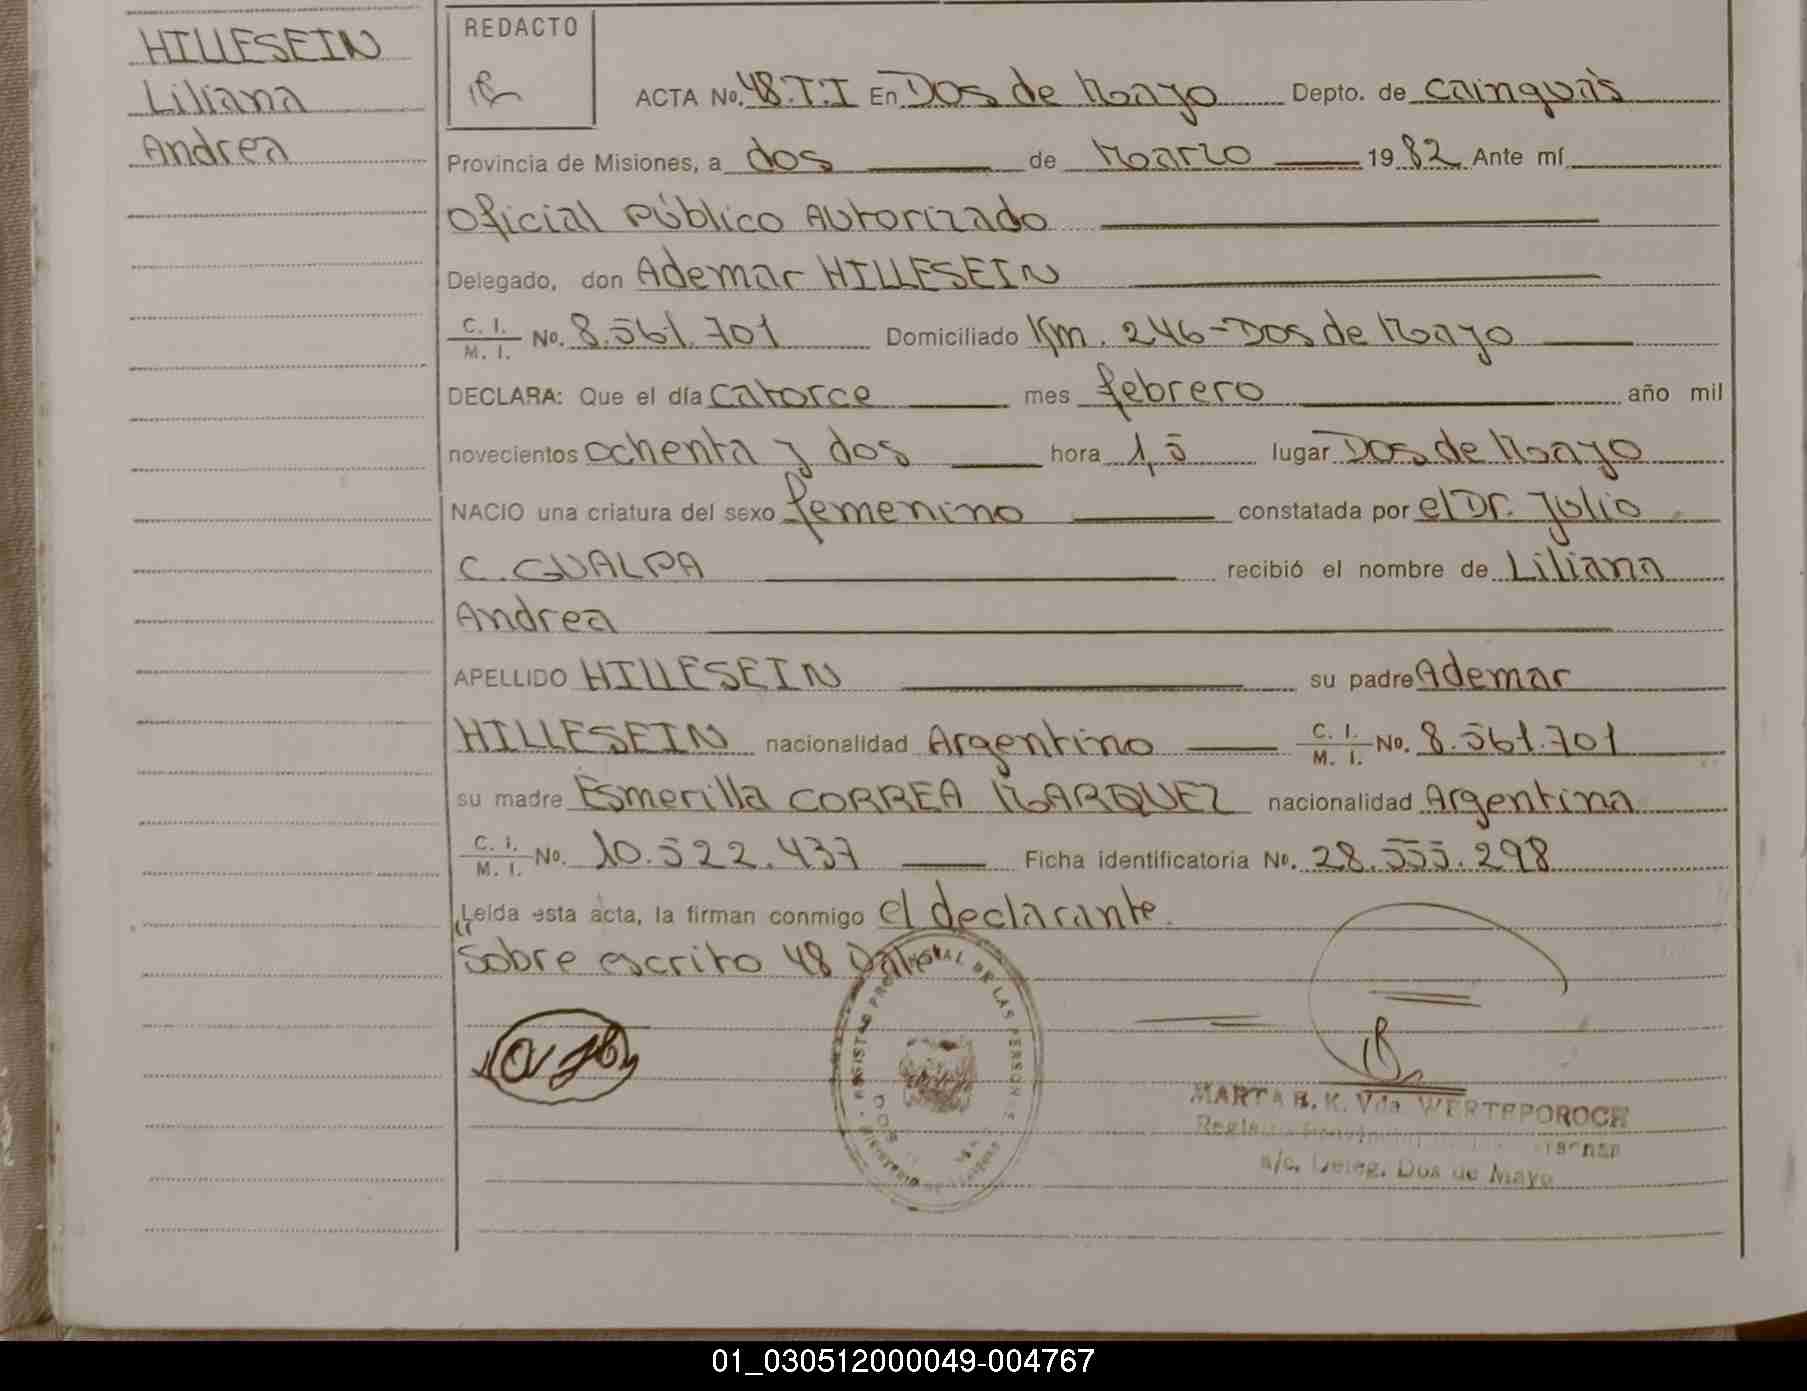 HILLESEIN
Liliana
Andrea
REDACTO
ACTA No. 48.T.I En Dos de Mayo Depto. de Cainguás
Provincia de Misiones, a dos de Marzo 1982 Ante mí
Oficial Público Autorizado
Delegado, don Ademar HILLESEIN
C. I.
M. I. No. 8.561.701 Domiciliado Km. 246-Dos de Mayo
DECLARA: Que el día catorce mes febrero año mil
novecientos ochenta y dos hora 1,5 lugar Dos de Mayo
NACIO una criatura del sexo femenino constatada por el Dr. Julio
C. GUALPA recibió el nombre de Liliana
Andrea
APELLIDO HILLESEIN su padre Ademar
HILLESEIN nacionalidad Argentino C. I.
M. I. No. 8.561.701
su madre Esmerilla CORREA MARQUEZ nacionalidad Argentina
C. I.
M. I. No. 10.522.437 Ficha identificatoria No. 28.555.298
Leída esta acta, la firman conmigo el declarante.
Sobre escrito 48 Vale
DE LAS PERSONAS
MARTA B. K. Vda. WERTEPOROCH
a/c. Deleg. Dos de Mayo
01_030512000049-004767